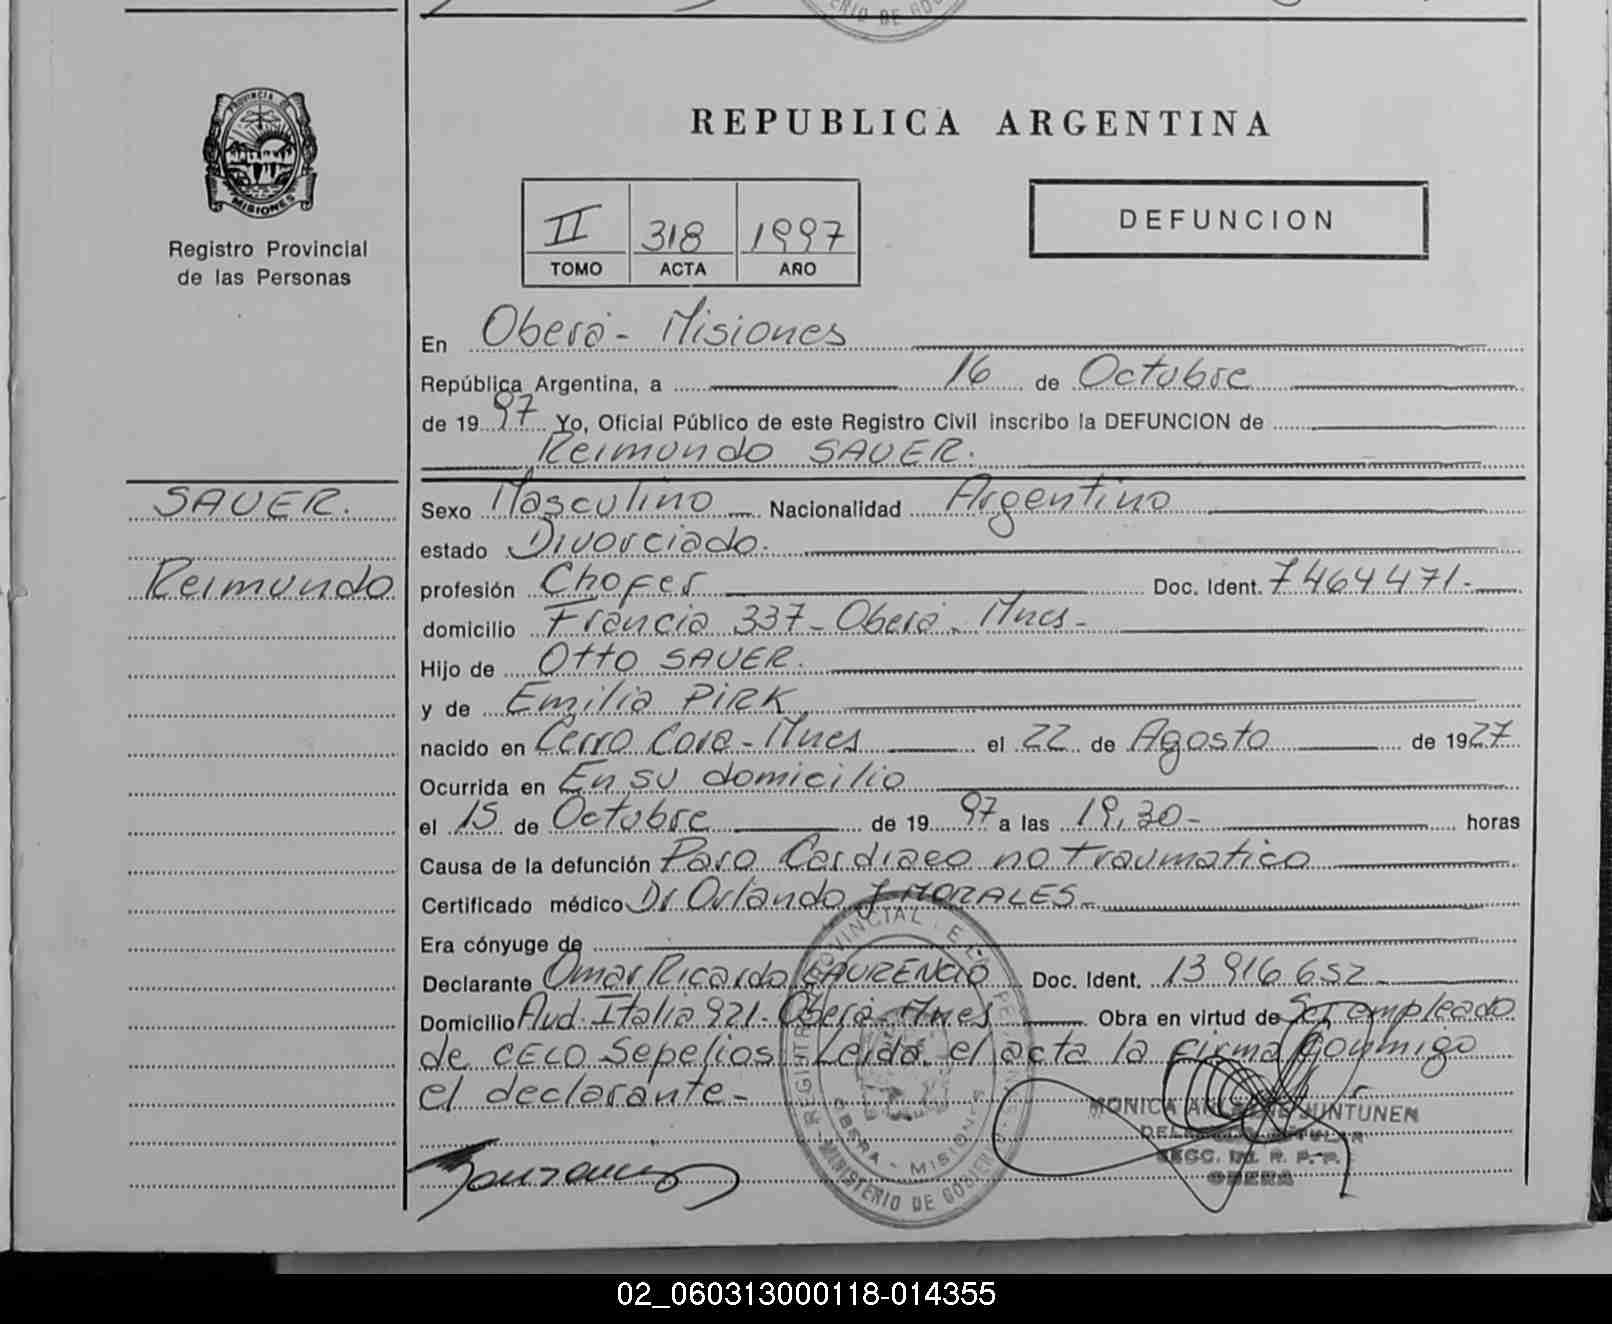 MINISTERIO DE GOB
PROVINCIA DE
MISIONES
Registro Provincial
de las Personas
REPUBLICA ARGENTINA
II 318 1997
TOMO ACTA AÑO
DEFUNCION
En Oberá - Misiones
República Argentina, a 16 de Octubre
de 1997 Yo, Oficial Público de este Registro Civil inscribo la DEFUNCION de
Reimundo SAUER.
SAUER.
Reimundo
Sexo Masculino Nacionalidad Argentino
estado Divorciado.
profesión Chofer Doc. Ident. 7464471-
domicilio Francia 337- Oberá - Mnes-
Hijo de Otto SAUER.
y de Emilia PIRK
nacido en Cerro Cora - Mnes el 22 de Agosto de 1927
Ocurrida en En su domicilio
el 15 de Octubre de 1997 a las 19,30- horas
Causa de la defunción Paro Cardiaco no traumatico
Certificado médico Dr Orlando J MORALES-
Era cónyuge de
Declarante Omar Ricardo LAURENCIO Doc. Ident. 13916652
Domicilio Avd. Italia 921- Oberá - Mnes Obra en virtud de Ser empleado
de CELO Sepelios. Leida el acta la firma conmigo
el declarante-
REGISTRO PROVINCIAL DE LAS PERSONAS
OBERA - MISIONES
MINISTERIO DE GOBIERNO
MONICA JUNTUNEN
DELEGADO TITULAR
SECC. R. P. P.
OBERA
02_060313000118-014355